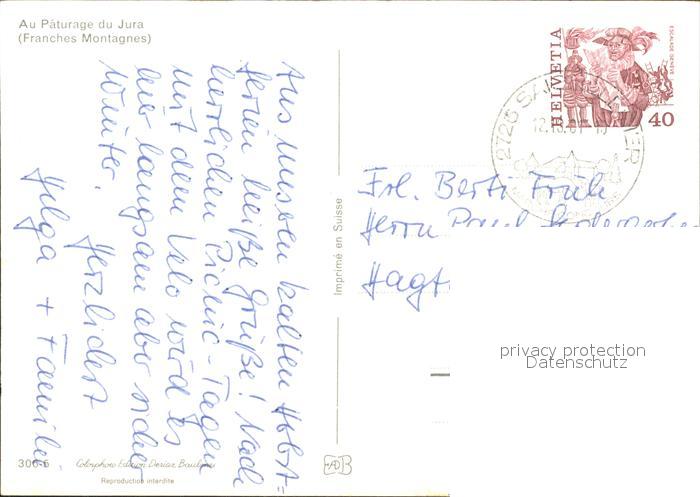 Au Pâturage du Jura
(Franches Montagnes)
Aus unseren kalten Herbst-
ferien heiße Grüße! Nach
herrlichen Picnic-Tagen
mit dem Velo wird es
hier langsam aber sicher
Winter.
Herzlichst
Helga + Familie
300-6
Colorphoto Edition Deriaz Baulmes
Reproduction interdite
Imprimé en Suisse
HELVETIA
ESCALADE GENÈVE
40
2726
Frl. Berti Früh
Herrn
Hagt
privacy protection
Datenschutz